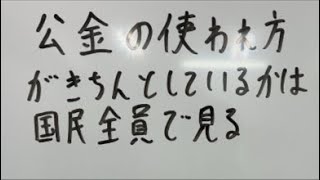 公金の使われ方
がきちんとしているかは
国民全員で見る